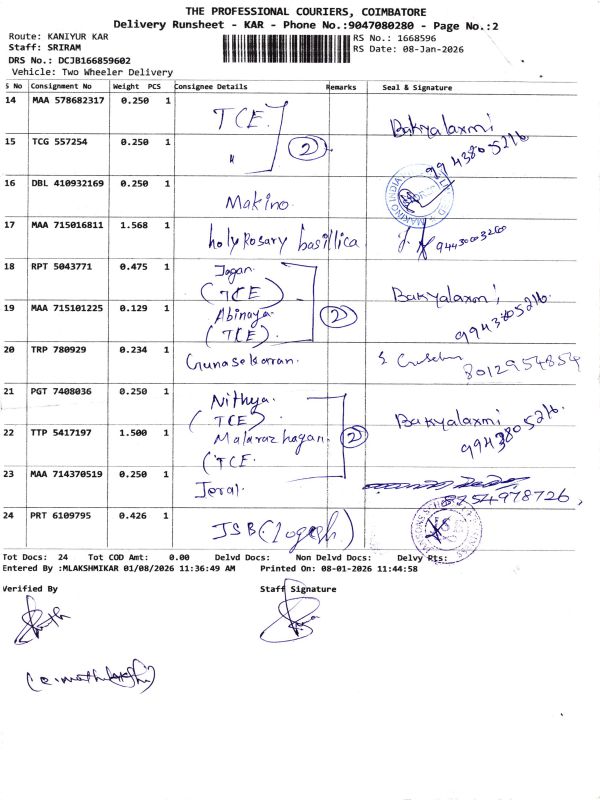 THE PROFESSIONAL COURIERS, COIMBATORE
Delivery Runsheet - KAR - Phone No.:9047080280 - Page No.:2
Route: KANIYUR KAR RS No.: 1668596
Staff: SRIRAM RS Date: 08-Jan-2026
DRS No.: DCJB166859602
Vehicle: Two Wheeler Delivery
S No Consignment No Weight PCS Consignee Details Remarks Seal & Signature
14 MAA 578682317 0.250 1 TCE Bakyalaxmi
15 TCG 557254 0.250 1 " 2 9943805216
16 DBL 410932169 0.250 1 Makino
17 MAA 715016811 1.568 1 holy Rosary basillica 9443003260
18 RPT 5043771 0.475 1 Jogan (TCE) Bakyalaxmi
19 MAA 715101225 0.129 1 Abinaya (TCE) 2 9943805216
20 TRP 780929 0.234 1 Gunasekaran 8012954854
21 PGT 7408036 0.250 1 Nithya (TCE) Bakyalaxmi
22 TTP 5417197 1.500 1 (TCE 2 9943805216
23 MAA 714370519 0.250 1 8254978726
24 PRT 6109795 0.426 1 JSB (Logesh)
Tot Docs: 24 Tot COD Amt: 0.00 Delvd Docs: Non Delvd Docs: Delvy Pts:
Entered By :MLAKSHMIKAR 01/08/2026 11:36:49 AM Printed On: 08-01-2026 11:44:58
Verified By Staff Signature